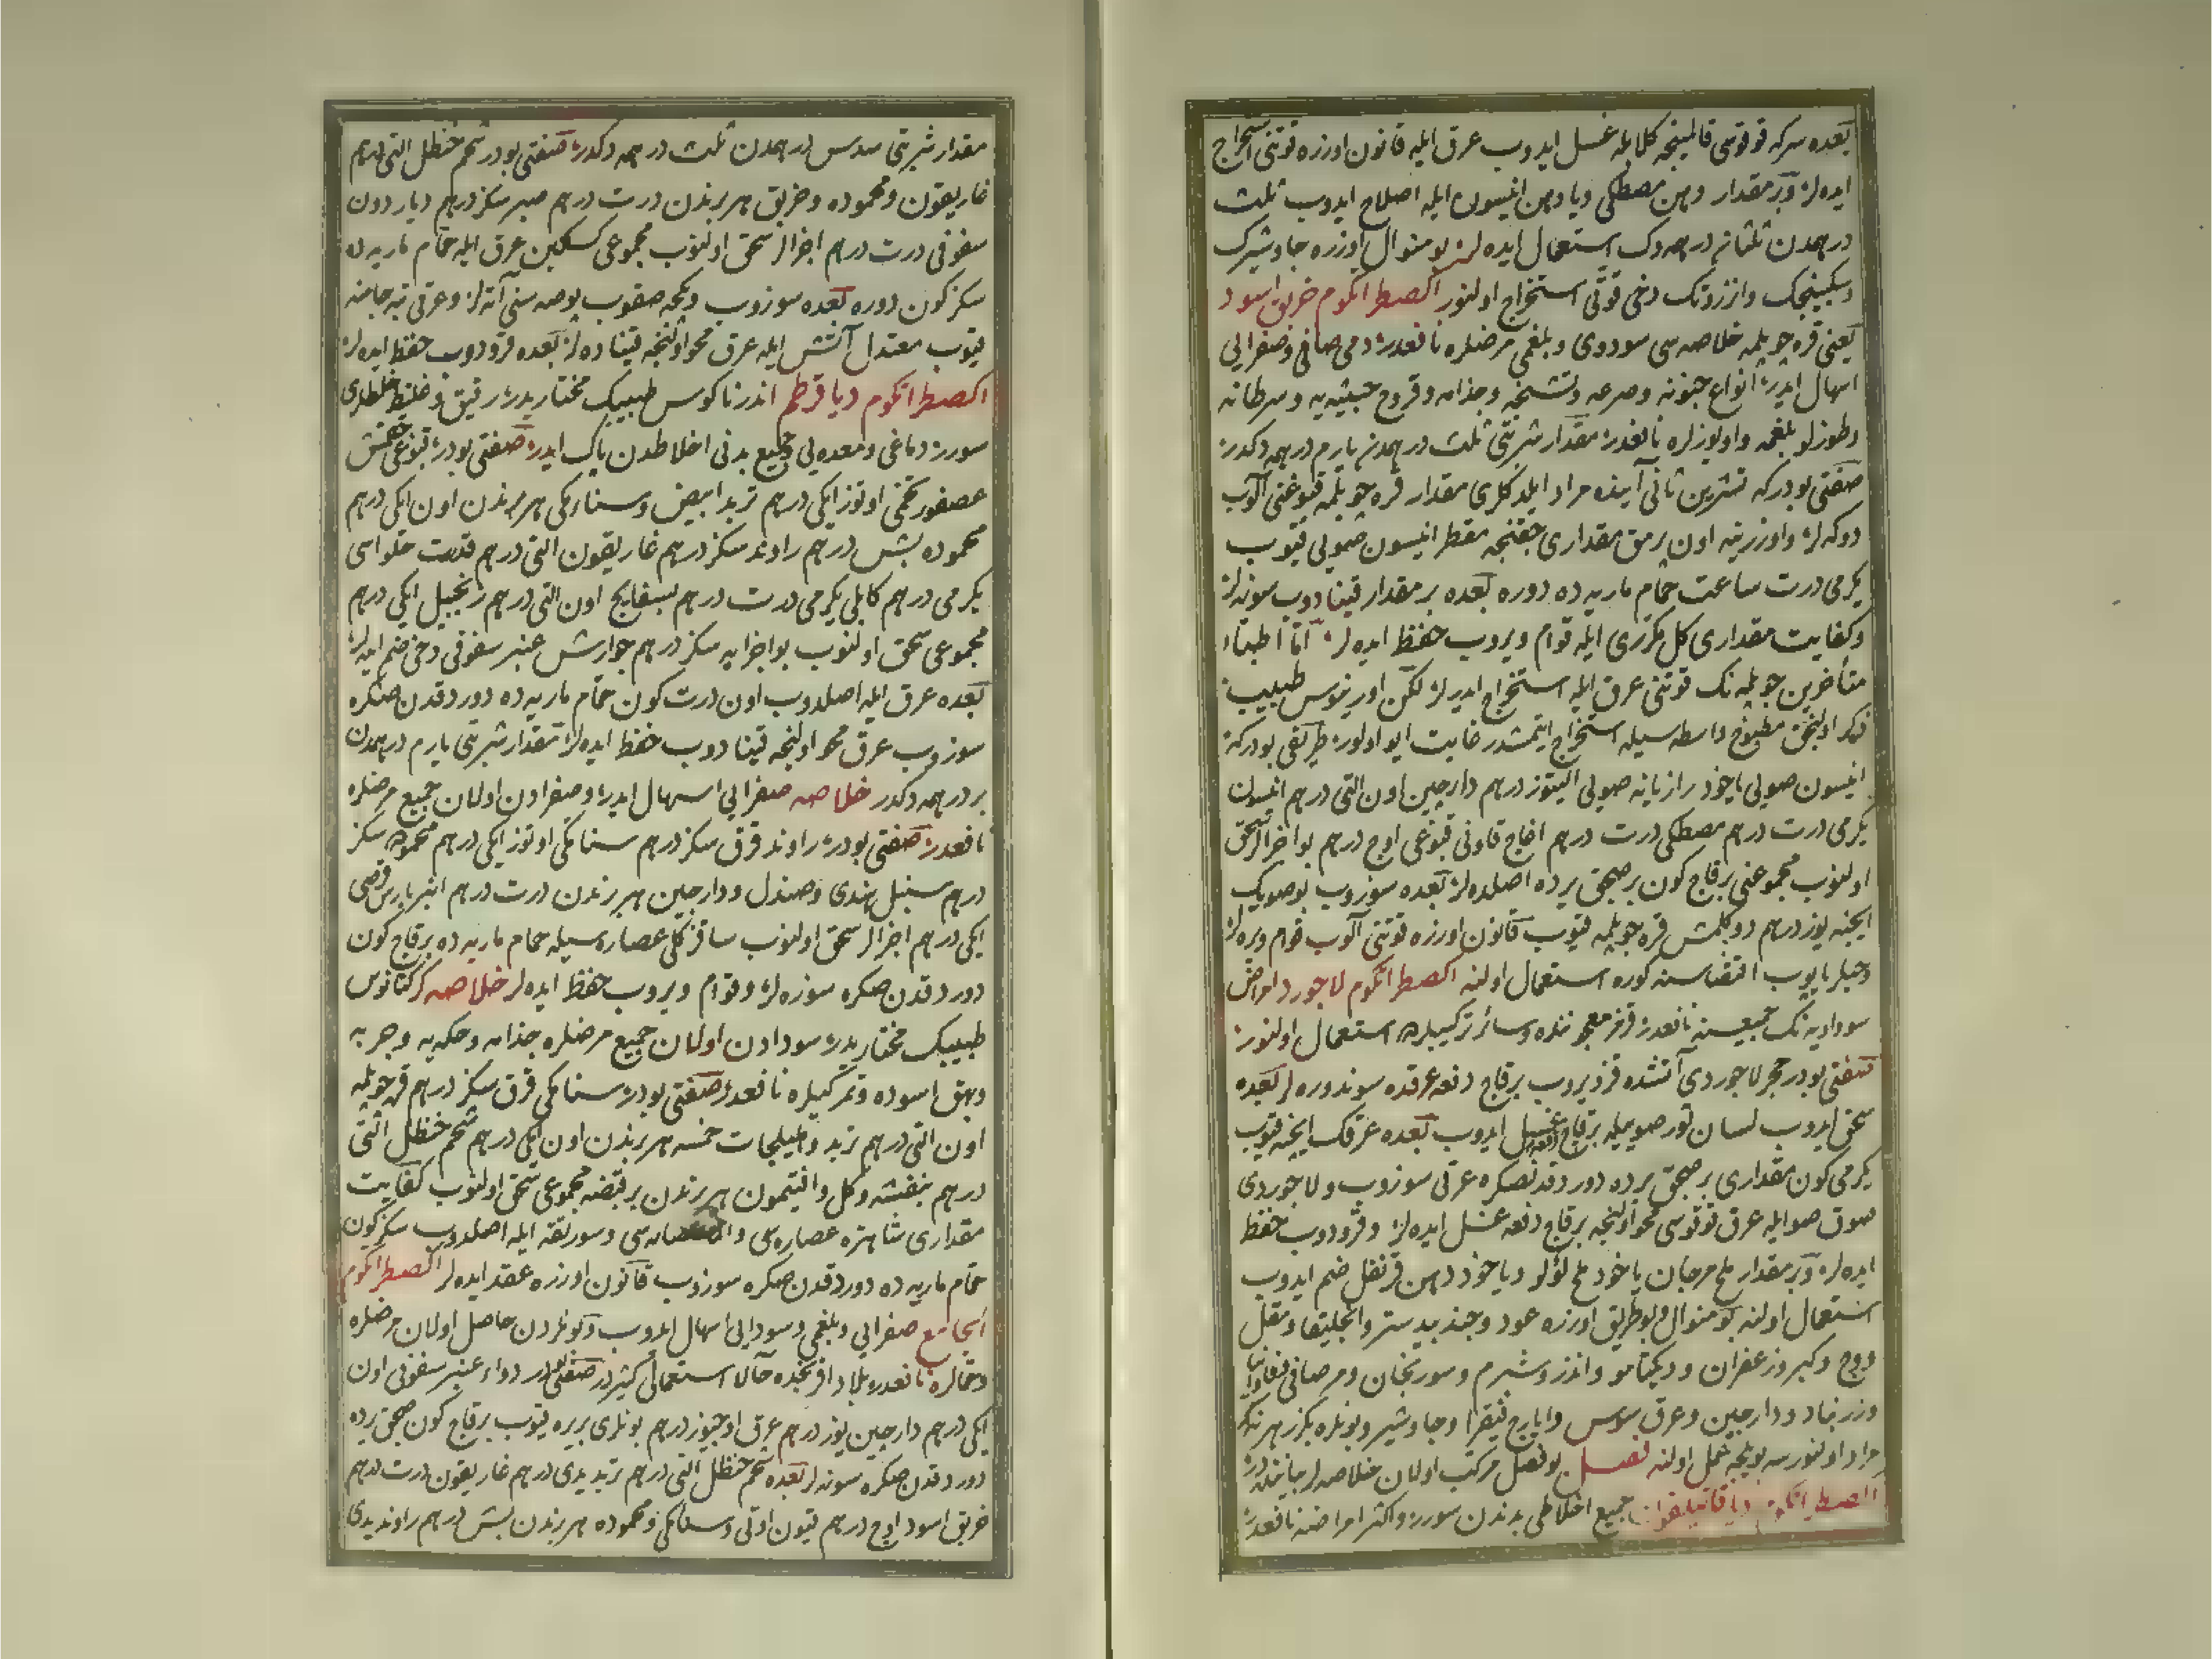 بعده سرکه قوقوسی قالمینجه کلابله غسل ایدوب عرق ایله قانون اوزره قوتنی استخراج
ایده لر وبر مقدار دهن مصطکی ویا دهن انیسون ایله اصلاح ایدوب ثلث
درهمدن ثلثان درهمه دک استعمال ایده لر بو منوال اوزره جاوشیرک
وسکبینجک وانزروتک دخی قوتی استخراج اولنور اکصطراقکوم خربق اسود
یعنی قره چوپلمه خلاصه سی سودوی وبلغمی مرضلره نافعدر دمی صافی وصفرایی
اسهال ایدر انواع جنونه وصرعه وتشنجه وجذامه وقروح خبیثه یه وسرطانه
وطوزلو بلغمه واویوزلره نافعدر مقدار شربتی ثلث درهمدن یارم درهمه دکدر
صفتی بودرکه تشرین ثانی آینده مراد ایلدکلری مقدار قره چوپلمه قبوغنی آلوب
دوکه لر واوزرینه اون برمق مقداری چقنجه مقطر انیسون صویی قیوب
یکرمی درت ساعت حمام ماریه ده دوره بعده بر مقدار قینادوب سوزه لر
وکفایت مقداری کل مکرری ایله قوام ویروب حفظ ایده لر اما اطباء
متأخرین چوپلمه نک قوتنی عرق ایله استخراج ایدرلر لکن اورینوس طبیب
ذکر اولنجق مطبوخ واسطه سیله استخراج ایتمشدر غایت ایو اولور طریقی بودرکه
انیسون صویی یاخود رازیانه صویی الیتوز درهم دارچین اون التی درهم انیسون
یکرمی درت درهم مصطکی درت درهم اغاج قاونی قبوغی اوچ درهم بو اجزالر سحق
اولنوب مجموعنی برقاج کون بر صیجق یرده اصلده لر بعده سوزوب بو صویک
ایچنه یوز درهم دوکلمش قره چوپلمه قیوب قانون اوزره قوتنی آلوب قوام ویره لر
وحبلر یاپوب اقتضاسنه کوره استعمال اولنه اکصطراقکوم لاجورد امراض
سوداویه نک جمیعسنه نافعدر قرمز معجوننده وسائر ترکیبلرده استعمال اولنور
صفتی بودر حجر لاجوردی آتشده قزدیروب برقاج دفعه عرقده سوندوره لر بعده
سحق ایدوب لسان ثور صوییله برقاج دفعه غسیل ایدوب بعده عرقک ایچنه قیوب
یکرمی کون مقداری بر صیجق یرده دوردقدنصکره عرقی سوزوب ولاجوردی
صوق صو ایله عرق قوقوسی محو اولنجه برقاج دفعه غسل ایده لر وقرودوب حفظ
ایده لر وبر مقدار ملح مرجان یاخود ملح لؤلو ویاخود دهن قرنفل ضم ایدوب
استعمال اولنه بو منوال وبو طریق اوزره عود وجند بیدستر وانجلیقا ومقل
ووج وکبر وزعفران ودیکتامو واندز وشبرم وسورنجان ومر صافی وفاوانیا
وزرنباد ودارچین وعرق سوس وایارج فیقرا وجاوشیر وبونلره بکزر هر نه که
مراد اولنورسه بویجه عمل اولنه فصل بو فصل مرکب اولان خلاصه لر بیاننده در
اکصطراقکوم دیاقاتیلقون جمیع اخلاطی بدندن سورر واکثر امراضه نافعدر
مقدار شربتی سدس درهمدن ثلث درهمه دکدر صفتی بودر شحم حنظل التی درهم
غاریقون ومحموده وخربق هر برندن درت درهم صبر سکز درهم دیاردون
سفوفی درت درهم اجزالر سحق اولنوب مجموعی کسکین عرق ایله حمام ماریه ده
سکز کون دوره بعده سوزوب ومحکم صقوب پوصه سنی آته لر وعرقی ینه جامنه
قیوب معتدل آتش ایله عرق محو اولنجه قیناده لر بعده قرودوب حفظ ایده لر
اکصطراقکوم دیاقرطم اندرناکوس طبیبک مختاریدر رقیق وغلیظ خلطلری
سورر دماغی ومعده یی وجمیع بدنی اخلاطدن پاک ایدر صفتی بودر قبوغی چقمش
عصفور تخمی اوتوز ایکی درهم تربد ابیض وسناء مکی هر برندن اون ایکی درهم
محموده بش درهم راوند سکز درهم غاریقون التی درهم قدرت حلواسی
یکرمی درهم کابلی یکرمی درت درهم بسفایج اون التی درهم زنجبیل ایکی درهم
مجموعی سحق اولنوب بو اجزایه سکز درهم جوارش عنبر سفوفی دخی ضم ایده لر
بعده عرق ایله اصلدوب اون درت کون حمام ماریه ده دوردقدن صکره
سوزوب عرق محو اولنجه قینادوب حفظ ایده لر مقدار شربتی یارم درهمدن
بر درهمه دکدر خلاصه صفرایی اسهال ایدر وصفرادن اولان جمیع مرضلره
نافعدر صفتی بودر راوند قرق سکز درهم سنا مکی اوتوز ایکی درهم محموده سکز
درهم سنبل هندی وصندل ودارچین هر برندن درت درهم انبرباریس قرصی
ایکی درهم اجزالر سحق اولنوب ساقز کلی عصاره سیله حمام ماریه ده برقاج کون
دوردقدن صکره سوزه لر وقوام ویروب حفظ ایده لر خلاصه کرکتانوس
طبیبک مختاریدر سودادن اولان جمیع مرضلره جذامه وحکه یه وجربه
وبهق اسوده وتمرکیلره نافعدر صفتی بودر سنا مکی قرق سکز درهم قره چوپلمه
اون التی درهم تربد وهلیلجات خمسه هر برندن اون ایکی درهم شحم حنظل التی
درهم بنفشه وکل وافتیمون هر برندن بر قبضه مجموعی سحق اولنوب کفایت
مقداری شاهتره عصاره سی وسورلقنه ایله اصلدوب سکز کون
حمام ماریه ده دوردقدن صکره سوزوب قانون اوزره عقد ایده لر اکصطراقکوم
الجامع صفرایی وبلغمی وسودایی اسهال ایدوب وبونلردن حاصل اولان مرضلره
وحمالره نافعدر بلاد افرنجده حالا استعمالی کثیردر صفتی بودر دواء عنبر سفوفی اون
ایکی درهم دارچین یوز درهم عرق اوچیوز درهم بونلری بریره قیوب برقاج کون صیجق یرده
دوردقدن صکره سوزه لر بعده شحم حنظل التی درهم تربد یدی درهم غاریقون درت درهم
خربق اسود اوچ درهم قیون اوتی وسنا مکی ومحموده هر برندن بش درهم راوند یدی